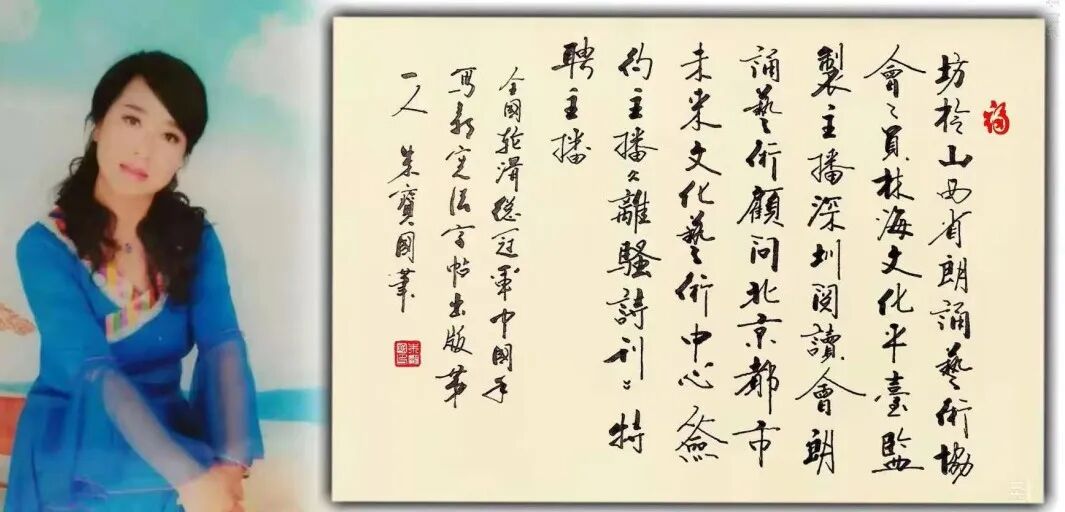 坊柃山西省朗誦藝術協
會々員林海文化平臺監
製主播深圳閱讀會朗
誦藝術顧問北京都市
未来文化藝術中心簽
約主播《離騷詩刊》特
聘主播
全國軟渭總冠軍中國手
寫新憲法字帖出版第
一人 朱寶國筆
福